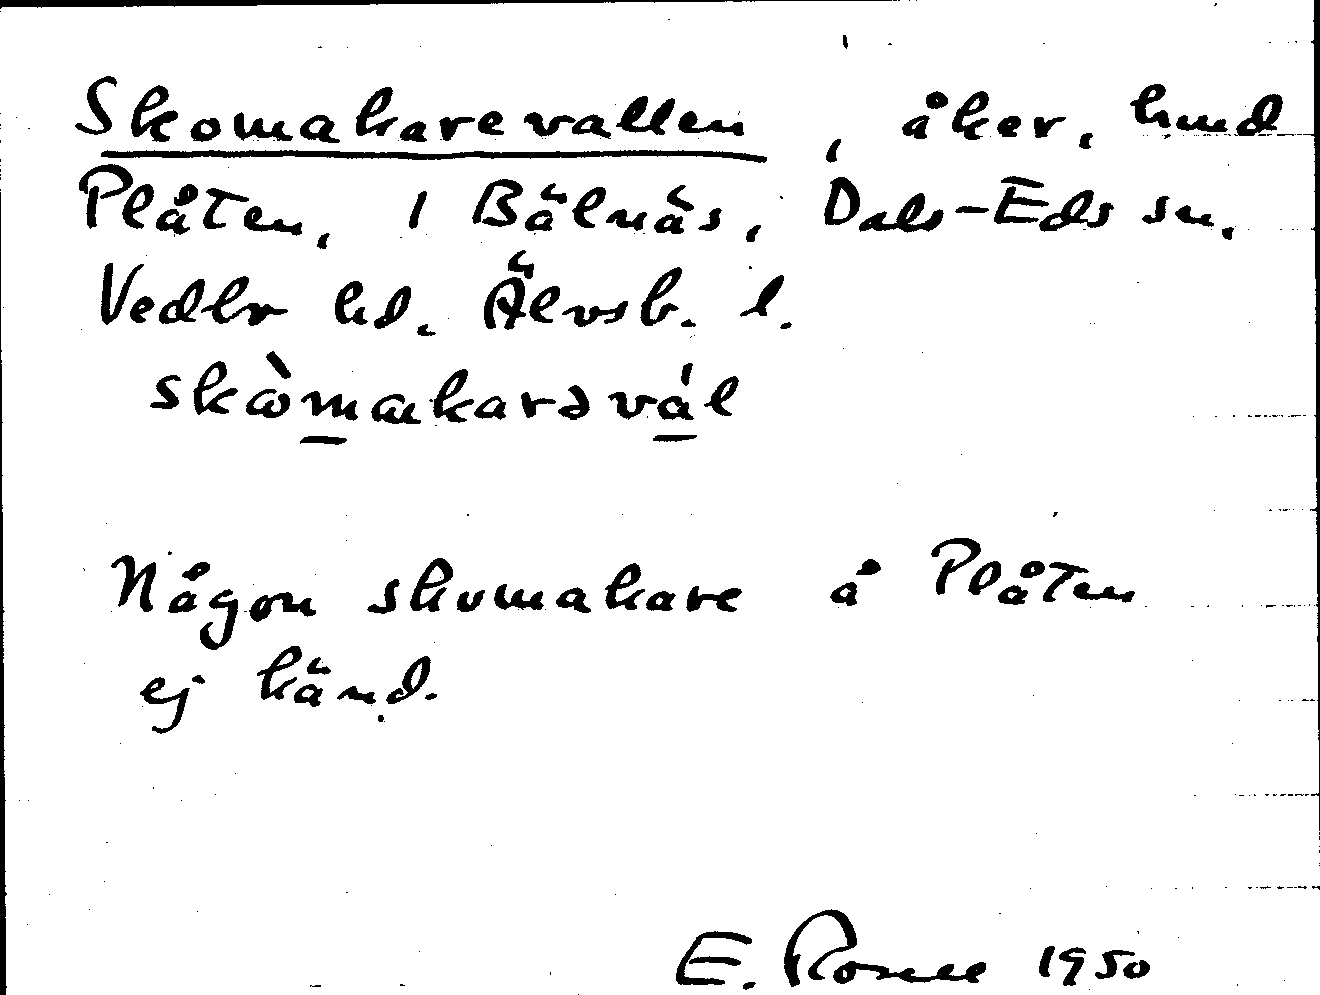 Skomakarevallen, åker, hmd
Plåten, 1 Bälnäs, Dals-Eds sn.
Vedbo hd. Älvsb. l.
skòmakarəvál
Någon skomakare å Plåten
ej känd.
E. 1950